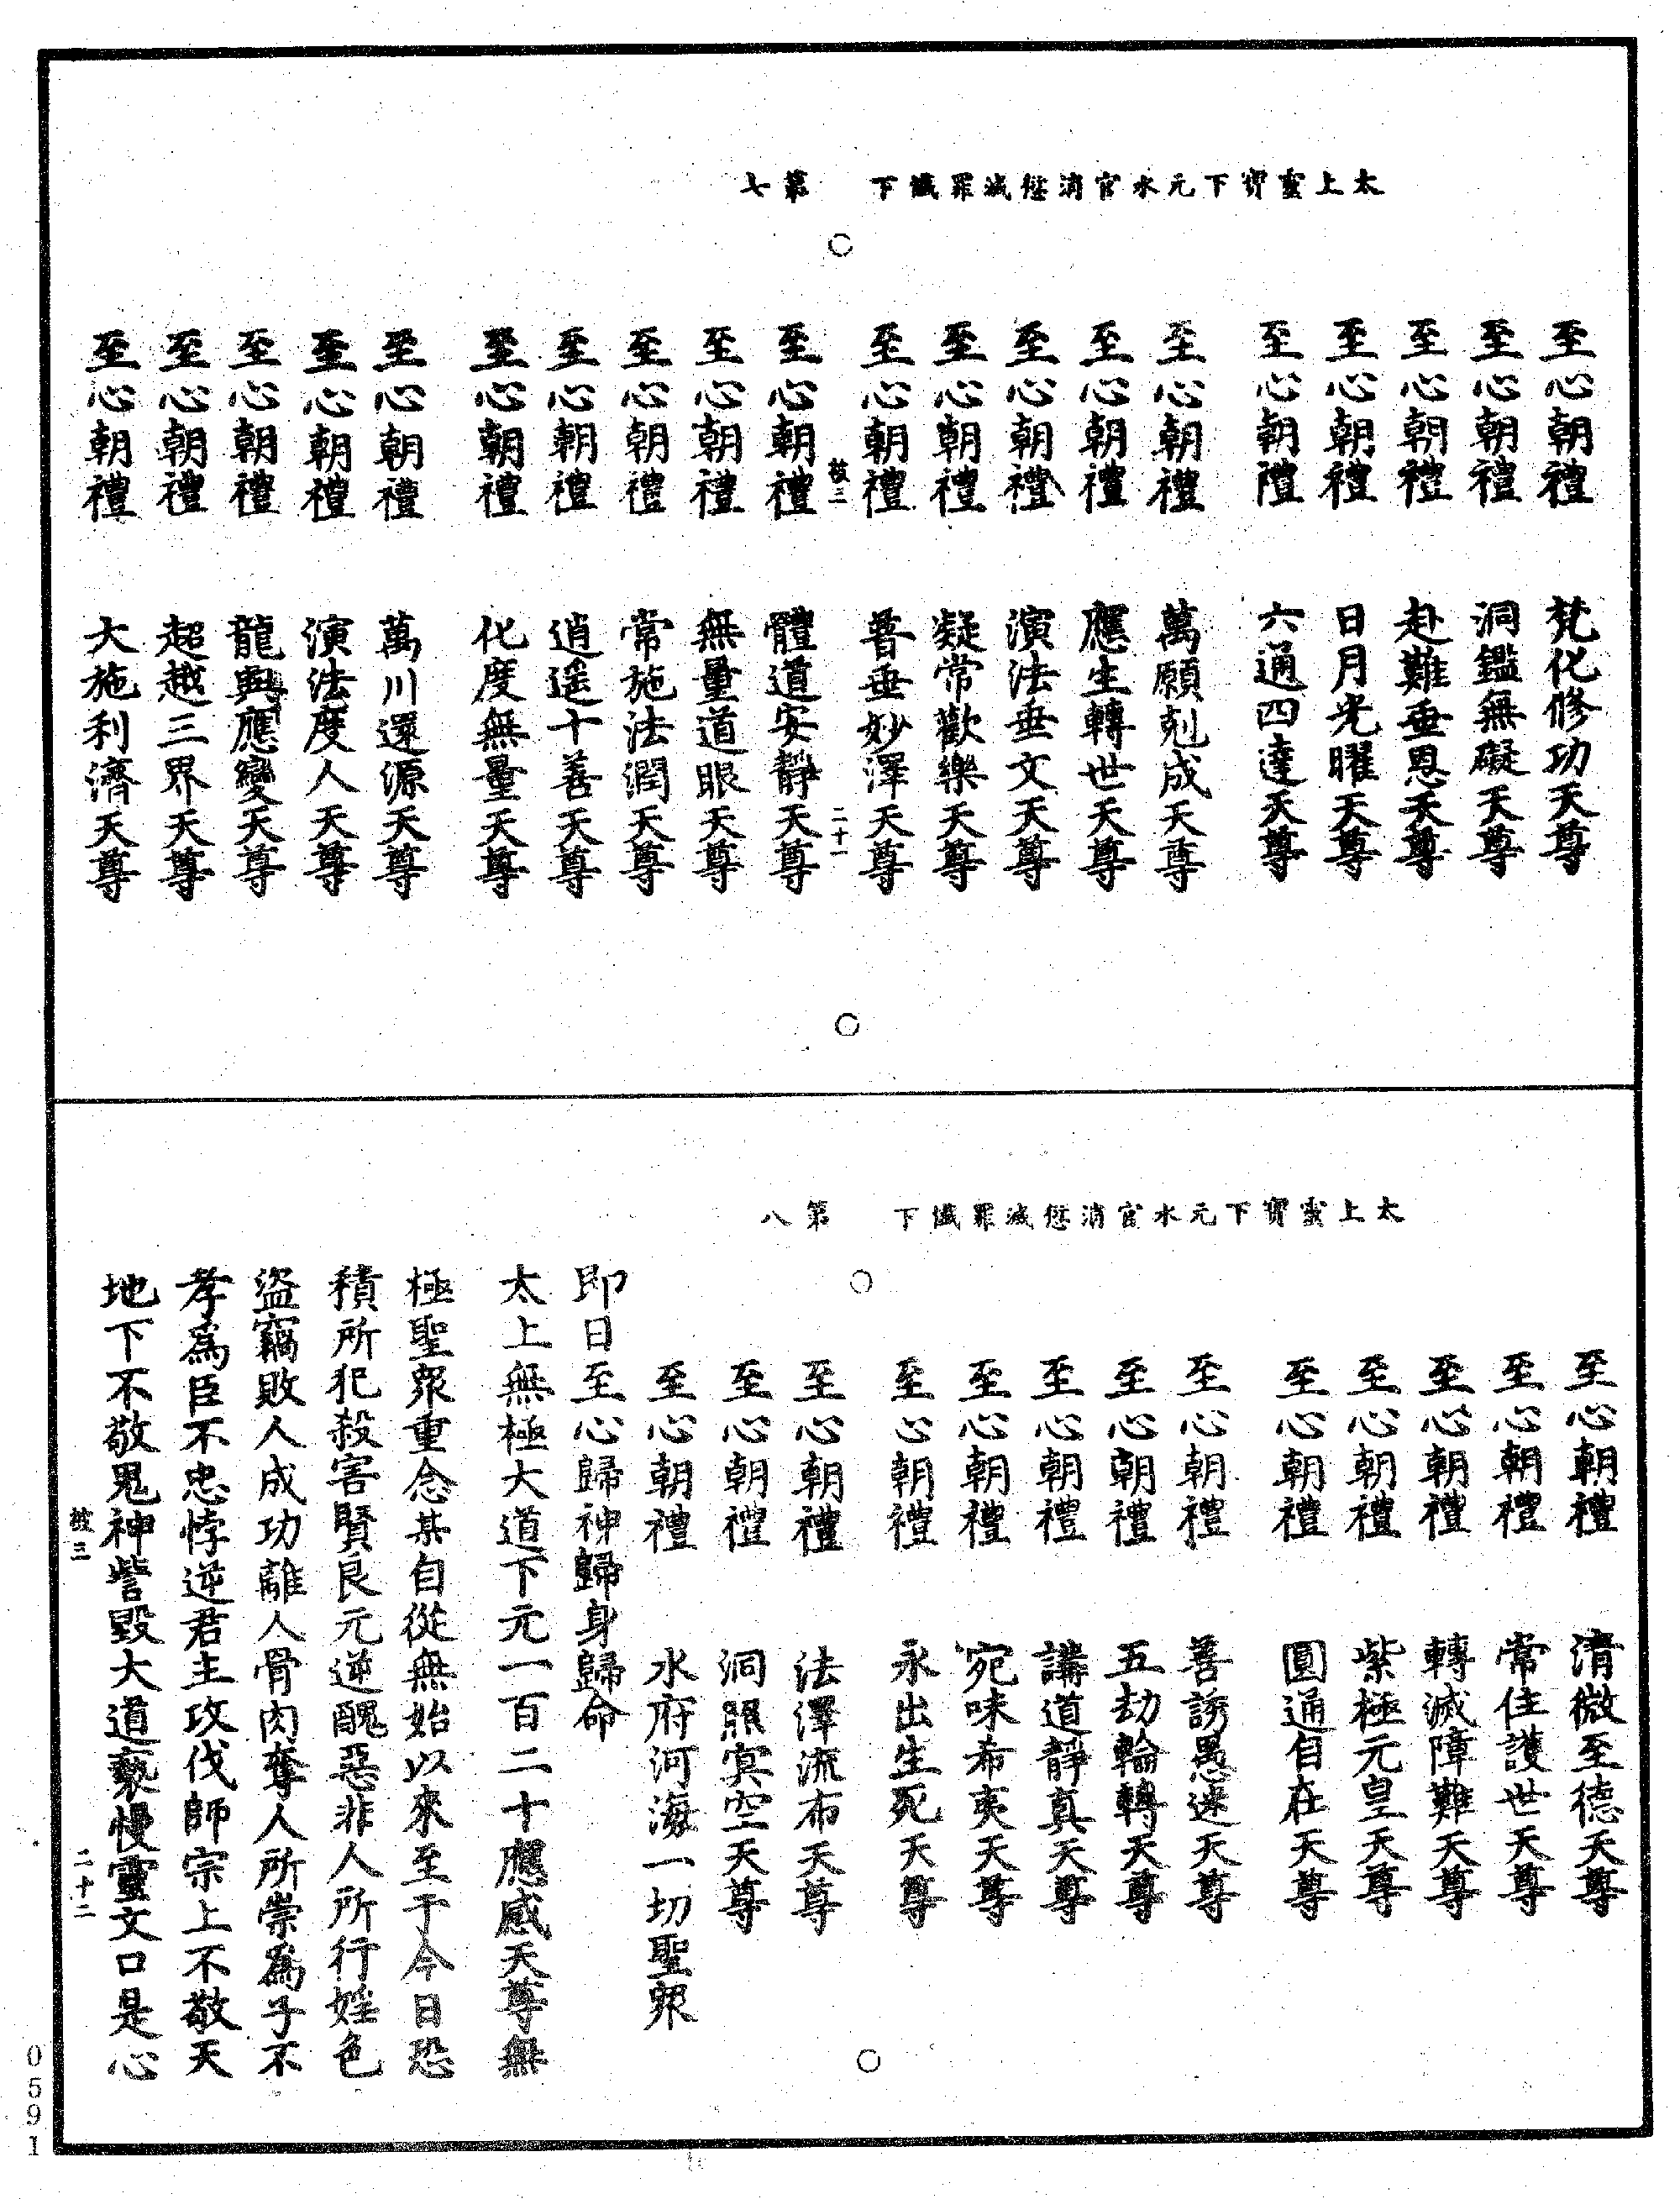 太上靈寶下元水官消愆滅罪懺下　第七
至心朝禮　梵化修功天尊
至心朝禮　洞鑑無礙天尊
至心朝禮　赴難垂恩天尊
至心朝禮　日月光曜天尊
至心朝禮　六通四達天尊
至心朝禮　萬願剋成天尊
至心朝禮　應生轉世天尊
至心朝禮　演法垂文天尊
至心朝禮　凝常歡樂天尊
至心朝禮　普垂妙澤天尊
被三　二十一
至心朝禮　體道安靜天尊
至心朝禮　無量道眼天尊
至心朝禮　常施法潤天尊
至心朝禮　逍遥十善天尊
至心朝禮　化度無量天尊
至心朝禮　萬川還源天尊
至心朝禮　演法度人天尊
至心朝禮　龍輿應變天尊
至心朝禮　超越三界天尊
至心朝禮　大施利濟天尊
太上靈寶下元水官消愆滅罪懺下　第八
至心朝禮　清微至德天尊
至心朝禮　常住護世天尊
至心朝禮　轉滅障難天尊
至心朝禮　紫極元皇天尊
至心朝禮　圓通自在天尊
至心朝禮　善誘愚迷天尊
至心朝禮　五劫輪轉天尊
至心朝禮　講道靜真天尊
至心朝禮　宛味希夷天尊
至心朝禮　永出生死天尊
至心朝禮　法澤流布天尊
至心朝禮　洞照冥空天尊
至心朝禮　水府河海一切聖眾
即日至心歸神歸身歸命
太上無極大道下元一百二十應感天尊無
極聖眾重念某自從無始以來至于今日恐
積所犯殺害賢良元逆醜惡非人所行婬色
盜竊敗人成功離人骨肉奪人所崇為子不
孝為臣不忠悖逆君主攻伐師宗上不敬天
地下不敬鬼神訾毀大道褻慢靈文口是心
被三　二十二
0591